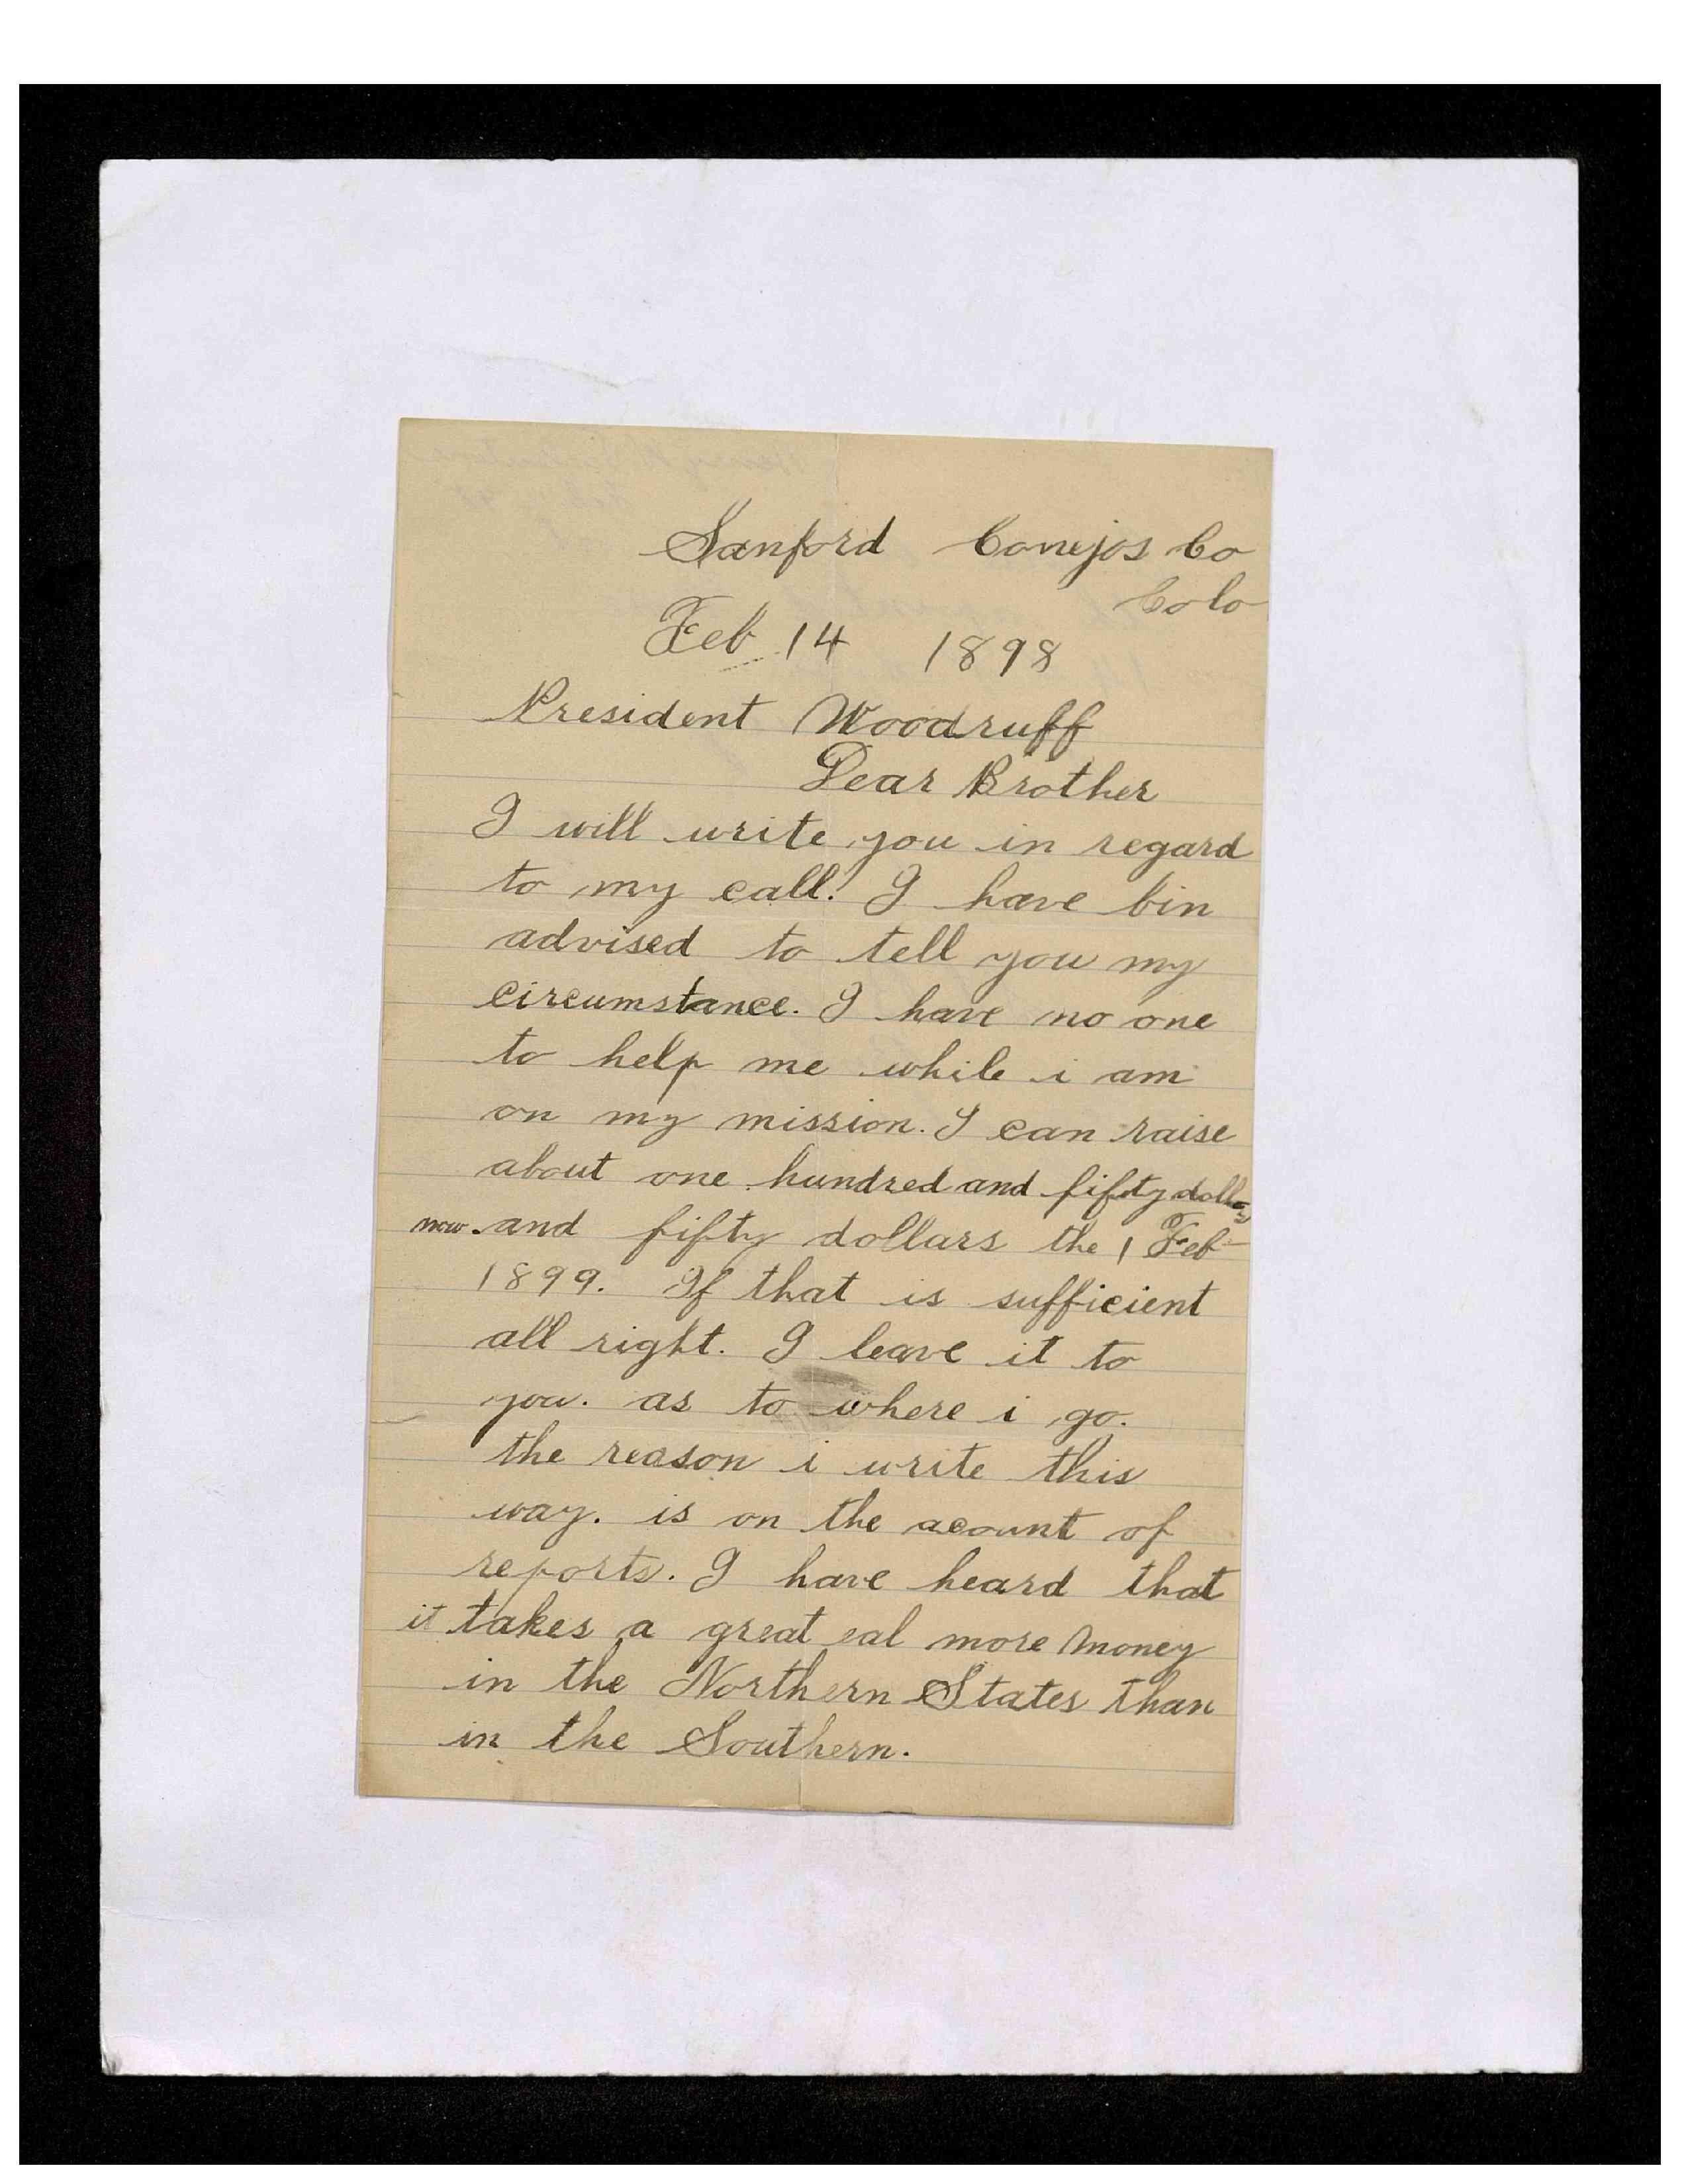 Sanford Conejos Co
Colo
Feb 14 1898
President Woodruff
Dear Brother
I will write you in regard
to my call. I have bin
advised to tell you my
circumstance. I have no one
to help me while i am
on my mission. I can raise
about one hundred and fifty dollars
now. and fifty dollars the 1 Feb
1899. If that is sufficient
all right. I leave it to
you. as to where i go.
the reason i write this
way. is on the acount of
reports. I have heard that
it takes a great eal more money
in the Northern States than
in the Southern.